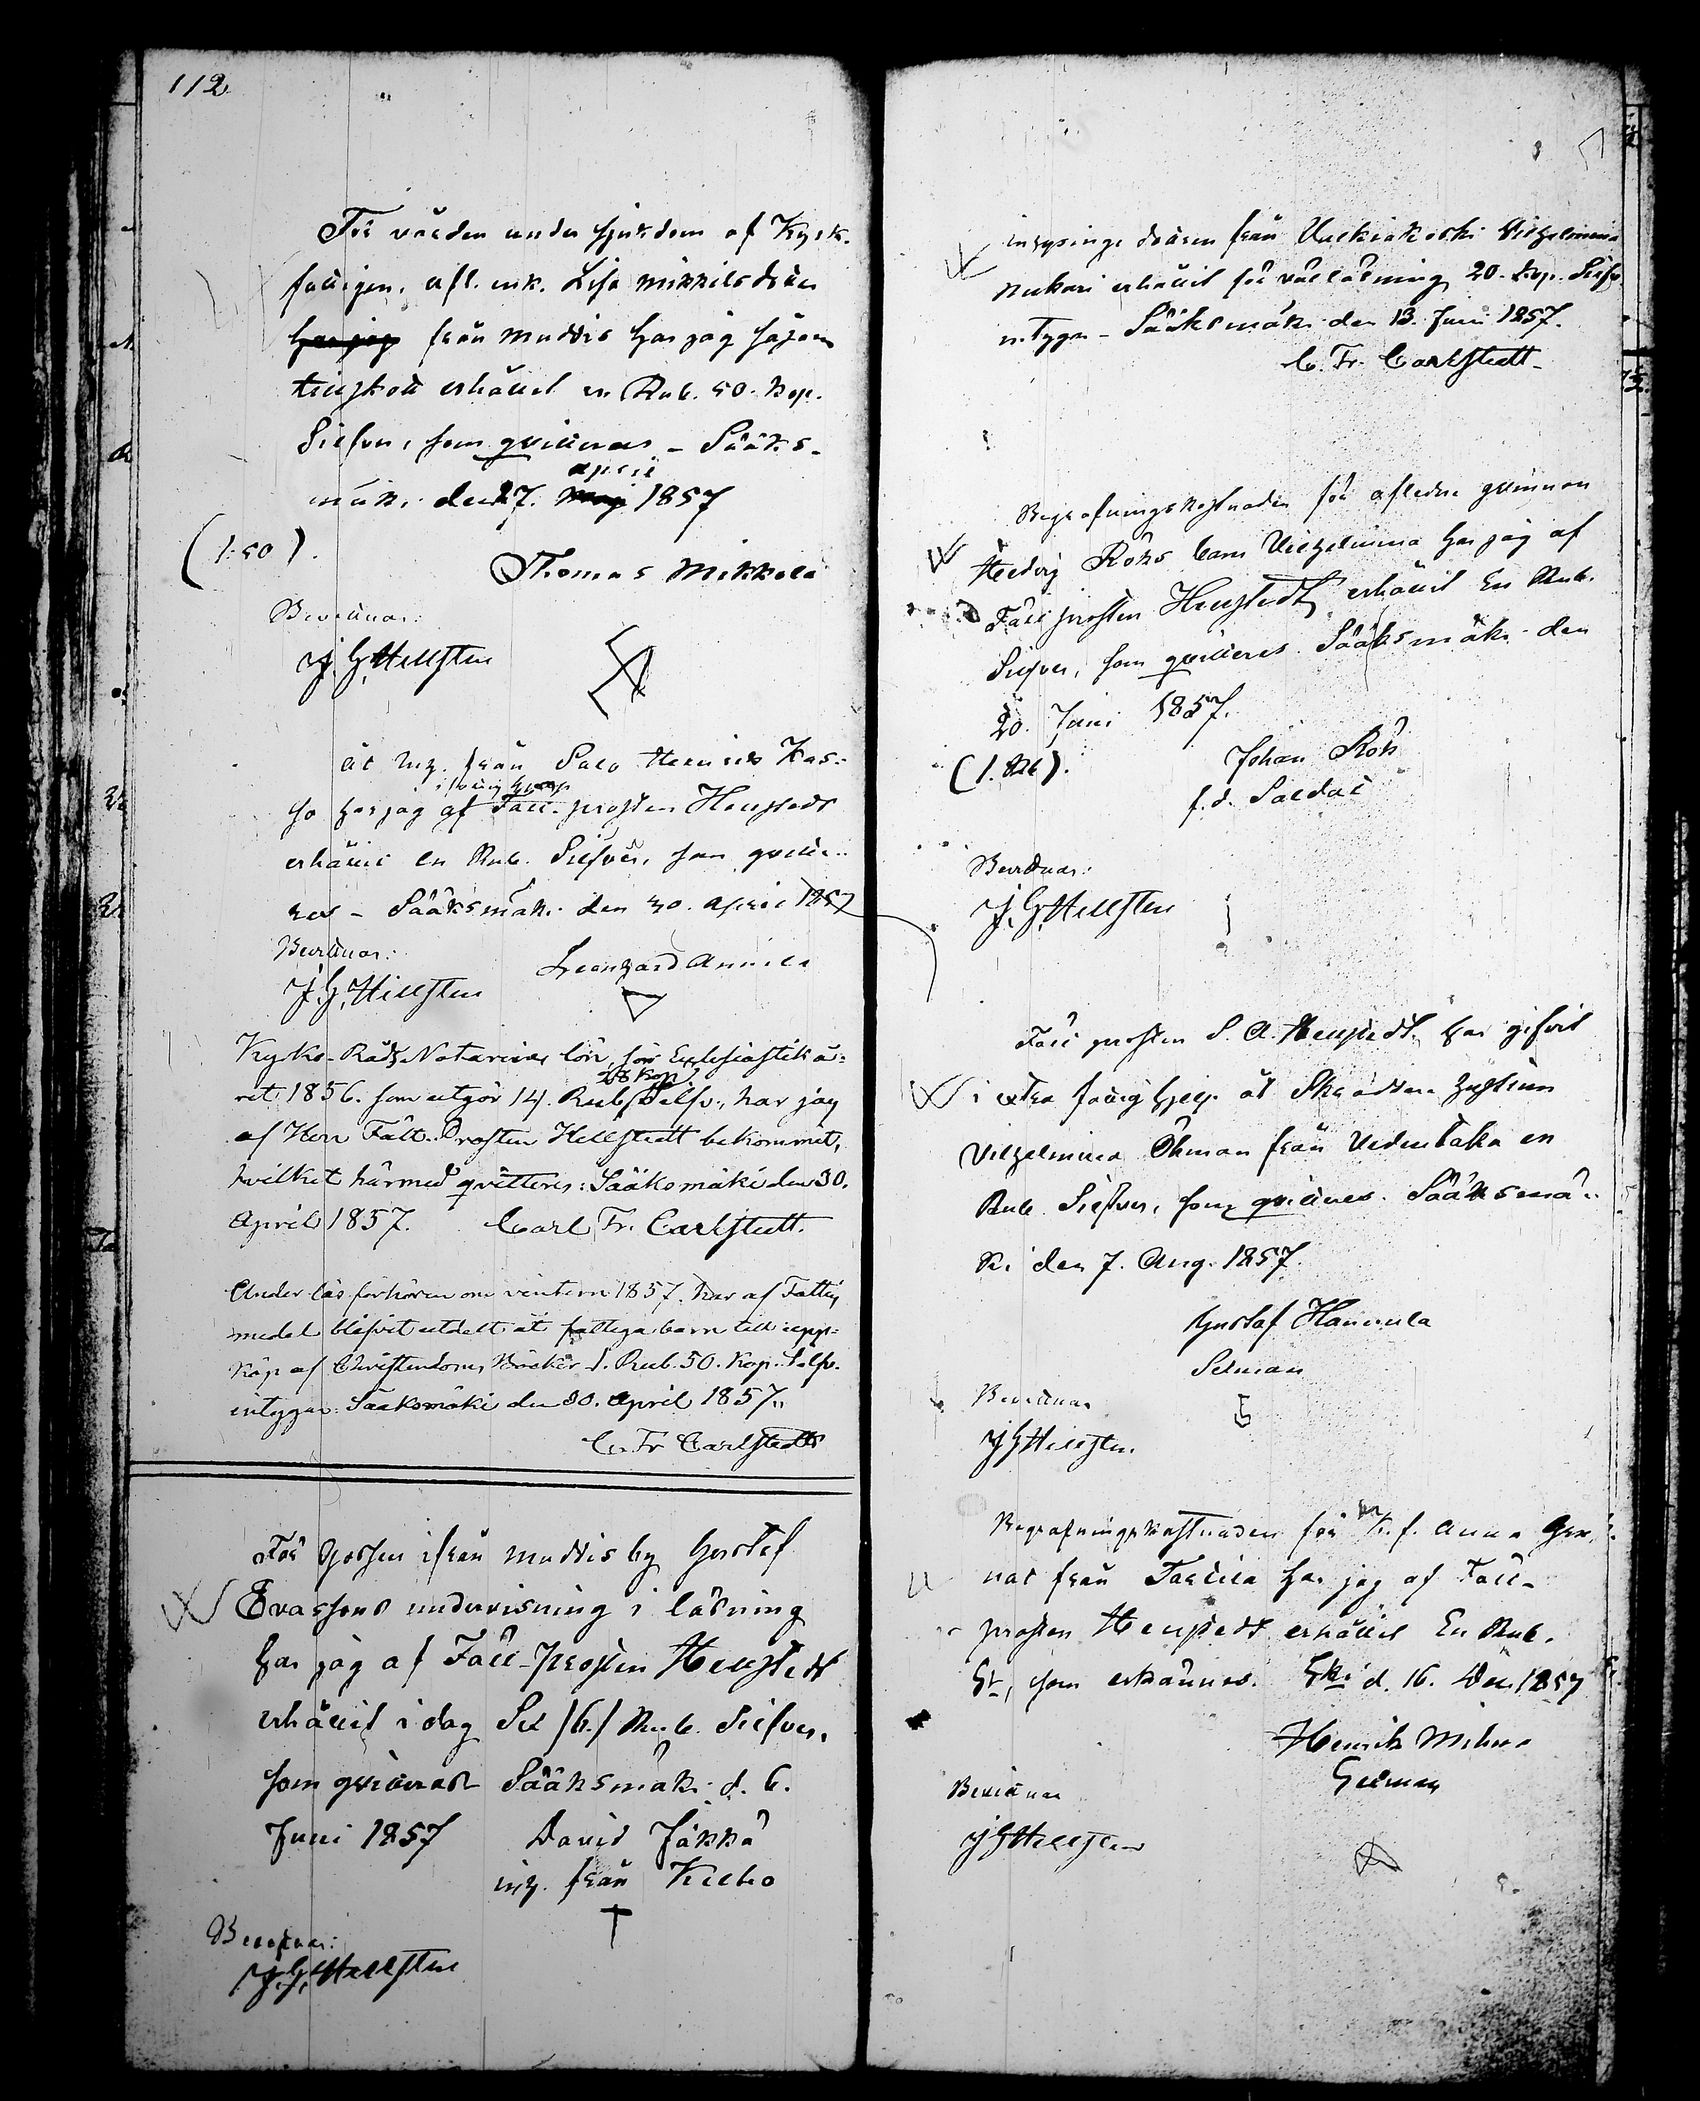 112
För vården under sjukdom af Kyrk-
fattigen, afl. enk. Lisa Mikkilsdotter
har jag från Muttis har jag såsom
erskott erhållit en Rub. 50. Kop.
Silfver, som qvitteras - Sääks-
april
mäki den 27. Maj 1857
(1:50).
Thomas Mikkola
Bevittnar:
J. G. Hellsten
åt inh. från Salo Henriks Kas-
i fattig hjelp
so har jag af Fält-prosten Hellstedt
erhållit en Rub. Silfver, som qvitte-
ras - Sääksmäki den 30. April 1857
Bevittnar:
Leonhard Annila
J. G. Hellsten
Kyrko-Råds Notaries lön för Eclesiastik å-
28 kop
ret 1856. som utgör 14. Rub. Silfv., har jag
af Herr Fält-Prosten Hellstedt bekommet,
hvilket härmed qvitteres: Sääksmäki den 30.
April 1857. Carl Fr. Carlstedt.
Under läs förhören om vintern 1857. har af Fattig
medel blifvit utdelt åt fattiga barn till upp-
köp af Christendoms Böcker 1. Rub. 50. Kop. Silfv.
intygar: Sääksmäki den 30. April 1857.
C. Fr. Carlstedt
För gossen ifrån Muttis by Gustaf
Evassons undervisning i läsning
har jag af Fält-Prosten Hellstedt
erhållit i dag Sex /6./ Rub. Silfver,
som qvitteras Sääksmäki d. 6.
Juni 1857 David Jäkkä
inh. från Kelho
Bevittnar:
J. G. Hellsten
inhysinge dottren från Valkiakoski Vilhelmina
Mukari erhållit för vällädning 20. kop. Silfv.
intygar - Sääksmäki den 13. Juni 1857.
C. Fr. Carlstedt
Begrafningskostnaden för aflidne qvinnan
Hedvig Röks barn Vilhelmina har jag af
Fält prosten Hellstedt erhållit En Rub.
Silfver, som qvitteres Sääksmäki den
20. Juni 1857.
Johan Rök
f.d. Soldat
Bevittnar:
J. G. Hellsten
Fält prosten S. A. Hellstedt har gifvit
i extra fattighjelp åt Skräddare hustrun
Vilhelmina Öhman från Uedentaka en
Rub. Silfver, som qvitteres. Sääksmä-
ki den 7. Aug. 1857.
Gustaf Hannula
Sexman
Bevittnar
J G Hellsten
Begrafningskostnaden för K. f. Anna
från Tarttila har jag af Fält-
prosten Hellstedt erhållit En Rub.
Sr, som erkännes. Ski d. 16. Dec 1857
Henrik
Bevittnar
J G Hellsten